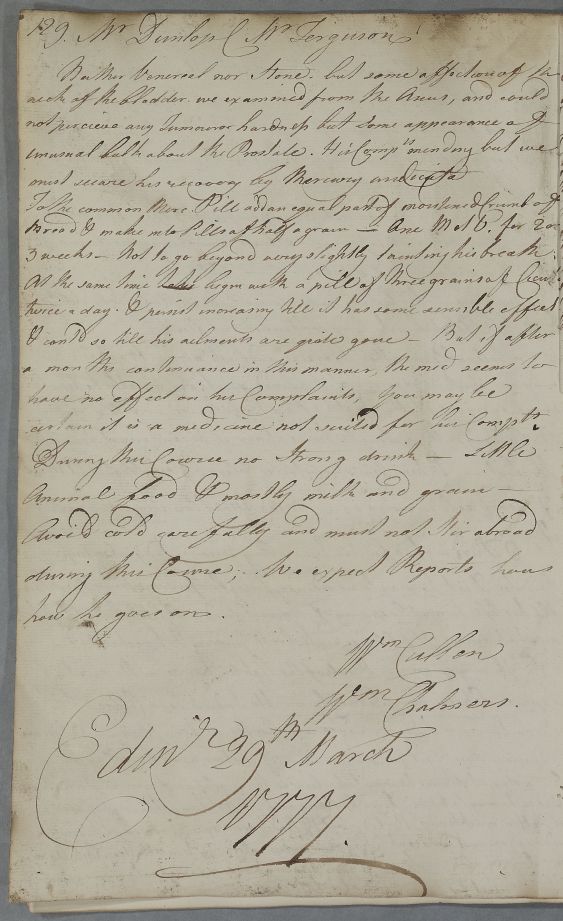 129. Mr Dunlop C Mr Ferguson
Neither Venereal nor Stone. but some affection of the
neck of the bladder. we examined from the Anus, and could
not percieve any Tumour or hardness but some appearance of
unusual bulk about the Prostate. His Compts mending but we
must secure his recovery by Mercury and Cicuta
To the common Merc. Pill add an equal part of moistened Crumb of
Bread & make into Pills of half a grain — One M & V. for 2 or
3 weeks — Not to go beyond very slightly tainting his breath.
At the same time begin with a pill of three grains of Cicuta
twice a day. & persist increasing till it has some sensible effect
& contd so till his ailments are quite gone — But if after
a months continuance in this manner, the med seems to
have no effect on his Complaints, you may be
certain it is a medicine not suited for his Complts.
During this Course no Strong drink — Little
Animal food & mostly milk and grain —
Avoid cold carefully and must not Stir abroad
during this Course; We expect Reports how
how he goes on.
Wm Cullen
Wm Chalmers.
Edinr 29th March
1777.